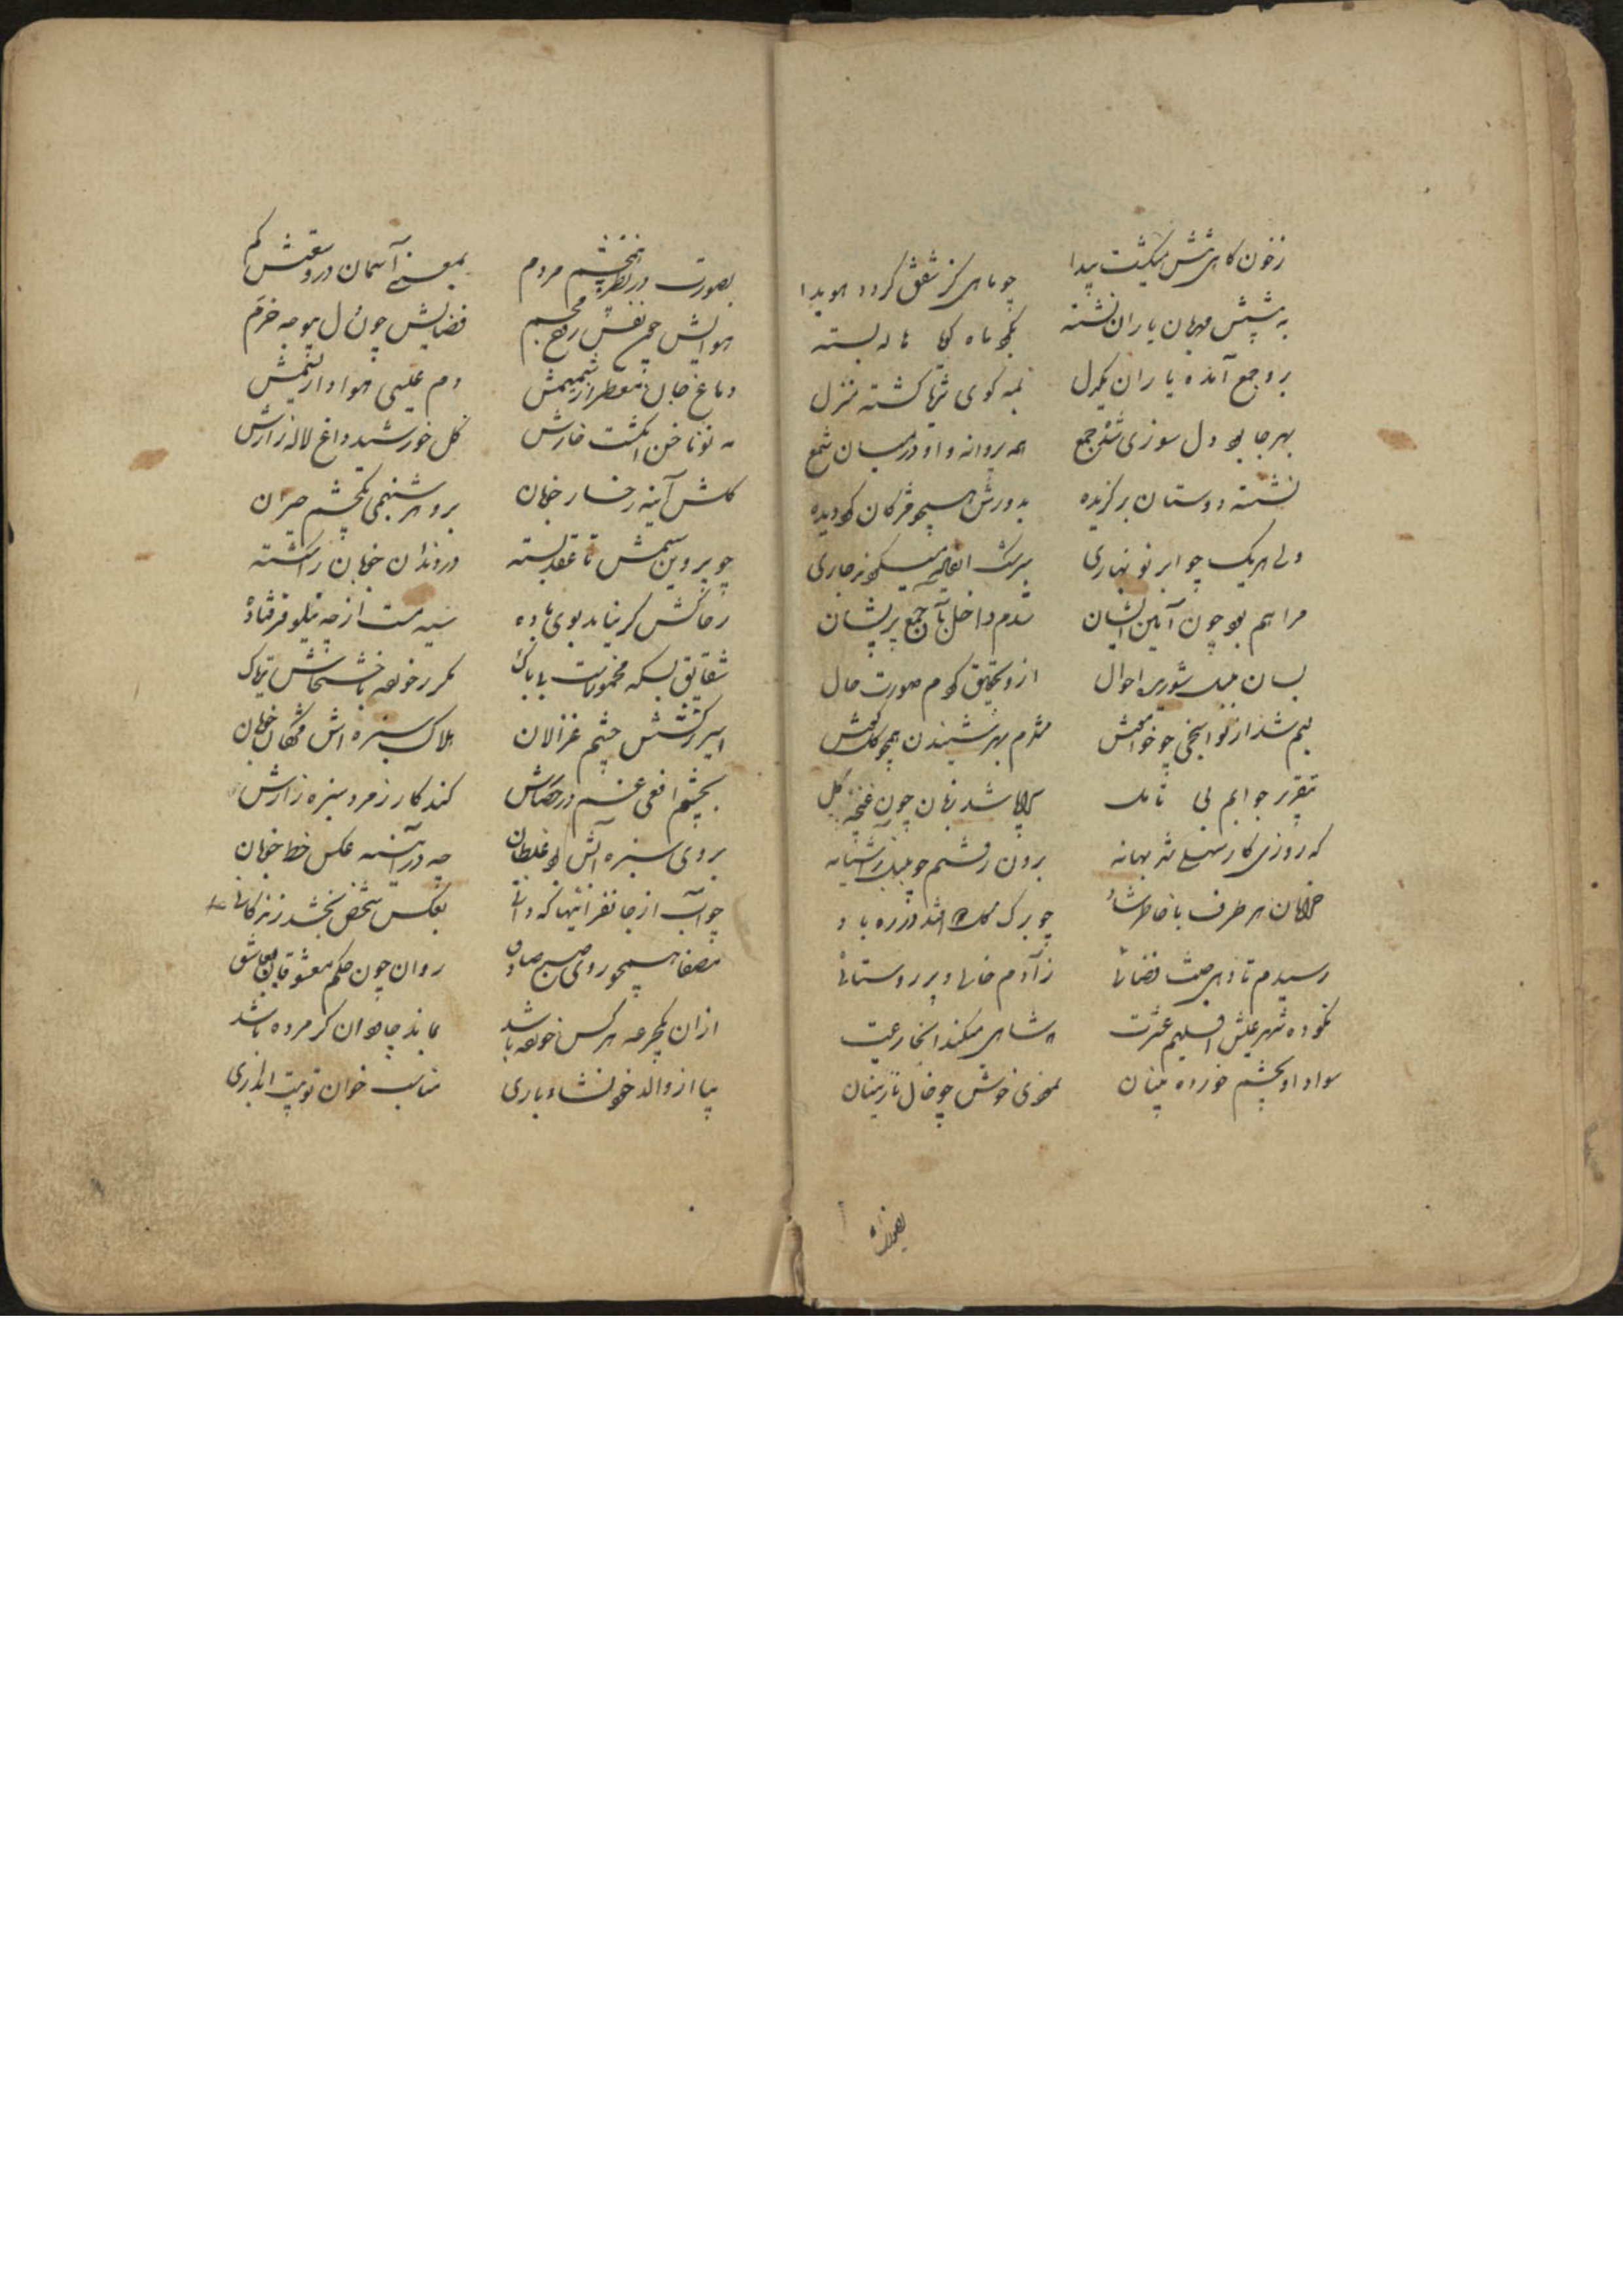 زخون کاهی شش میگشت پیدا چو ماهی کز شفق گردد هویدا
به پیشش مهربان یاران نشسته بگرد ماه گویا هاله بسته
برو جمع آمده یاران یکدل نمه کوی ثریا گشته منزل
بهر جا بود دل سوزی شده جمع همه پروانه و او در میان شمع
نشسته دوستان برگزیده بدورش همچو مژگان گرد دیده
ولی هریک چو ابر نوبهاری سرشک از میکرد جاری
مرا هم بود چون آیین ایشان شدم داخل بآن جمع پریشان
بسان بلبل شوریده احوال ازو تحقیق کردم صورت حال
لبم شد از نواسنجی چو خوامش شدم بهر شنیدن همچو گل گوش
بتقریر جوابم بی تامل سراپا شد زبان چون غنچه گل
که روزی کار بهانه برون رفتم چو بلبل ز آشیانه
خرامان هر طرف با خاطر شاد چو برگ گل که افتد در ره باد
رسیدم تا فضائی ز آدم خالی و پر روستائی
نکرده شهر عیش اقلیم عشرت شاهی میکند آنجا رعیت
سواد او بچشم خورده بینان بخوبی خوش چو خال نازنینان
بصورت
بصورت در نظر چشم مردم بمعنی آسمان در وسعتش گم
هوایش چون نفس روح مجسم فضایش چون دل بیوجه خرم
دماغ جان معطر از شمیمش دم عیسی هوادار نسیمش
مه نو ناخن انگشت خارش گل خورشید داغ لاله زارش
گلش آینه رخسار خوبان برو هر شبنمی یکچشم حیران
چو پروین سیمش تا عقد بسته در دندان خوبان را شکسته
ز خاکش گر نیاید بوی باده سیه مست از چه نیلوفر فتاده
شقایق بسکه مخمورست بیباک مکرر خورده با خشخاش تریاک
اسیر نرگسش چشم غزالان هلاک سبزه اش مژگان خوبان
بچشم افعی غم در حصارش کند کار زمرد سبزه زارش
بروی سبزه آبش بود غلطان چه در آینه عکس خط خوبان
چو آب از جانفزائیها که دانی بعکس شخص بخشد زندگانی
مصفا همچو روی صبح صادق روان چون حکم معشوقان بعاشق
از آن یکجرعه هر کس خورده باشد بماند جاودان گر مرده باشد
بیا از والد خونشا و باری مناسب خوان توبیت ابداری